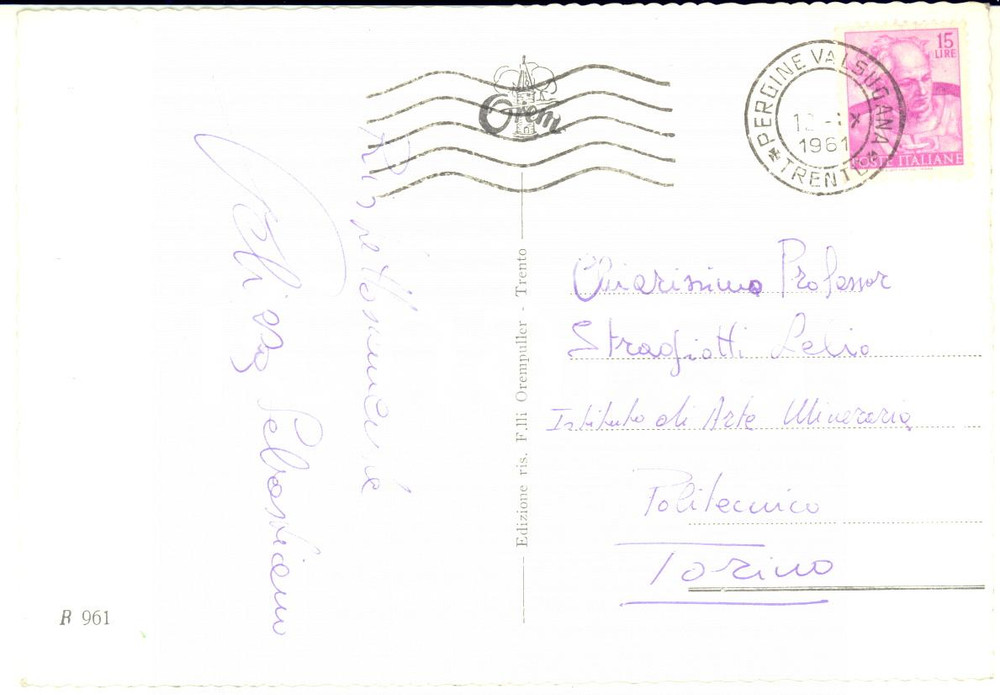 Rispettosamente
Sebastiano
Orem
PERGINE VALSUGANA
12-
1961
* TRENTO *
15
LIRE
POSTE ITALIANE
Chiarissimo Professor
Stragiotti Lelio
Istituto di Arte Mineraria
Politecnico
Torino
Edizione ris. F.lli Orempuller - Trento
R 961